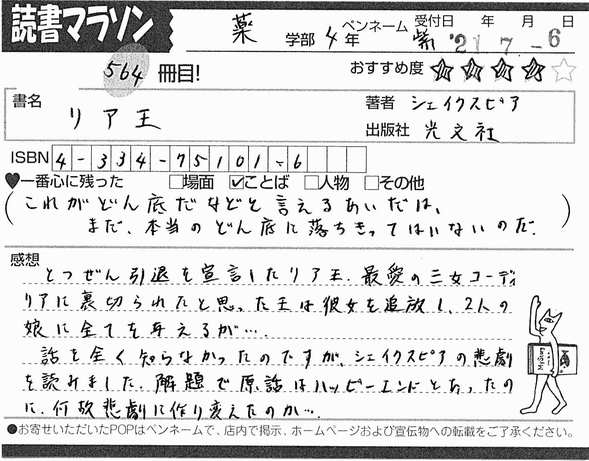 読書マラソン
薬 学部 4年 ペンネーム 紫 受付日 年 月 日
'21 7 -6
564 冊目! おすすめ度 ★★★★☆
書名 リア王
著者 シェイクスピア
出版社 光文社
ISBN 4-334-75101-6
♥一番心に残った □場面 ☑ことば □人物 □その他
(これがどん底だなどと言えるあいだは、
まだ、本当のどん底に落ちきってはいないのだ。)
感想
とつぜん引退を宣言したリア王、最愛の三女コーディ
リアに裏切られたと思った王は彼女を追放し、2人の
娘に全てを与えるが…。
話を全く知らなかったのですが、シェイクスピアの悲劇
を読みました。解題で原話はハッピーエンドとあったの
に、何故悲劇に作り変えたのか…。
●お寄せいただいたPOPはペンネームで、店内で掲示、ホームページおよび宣伝物への転載をご了承ください。